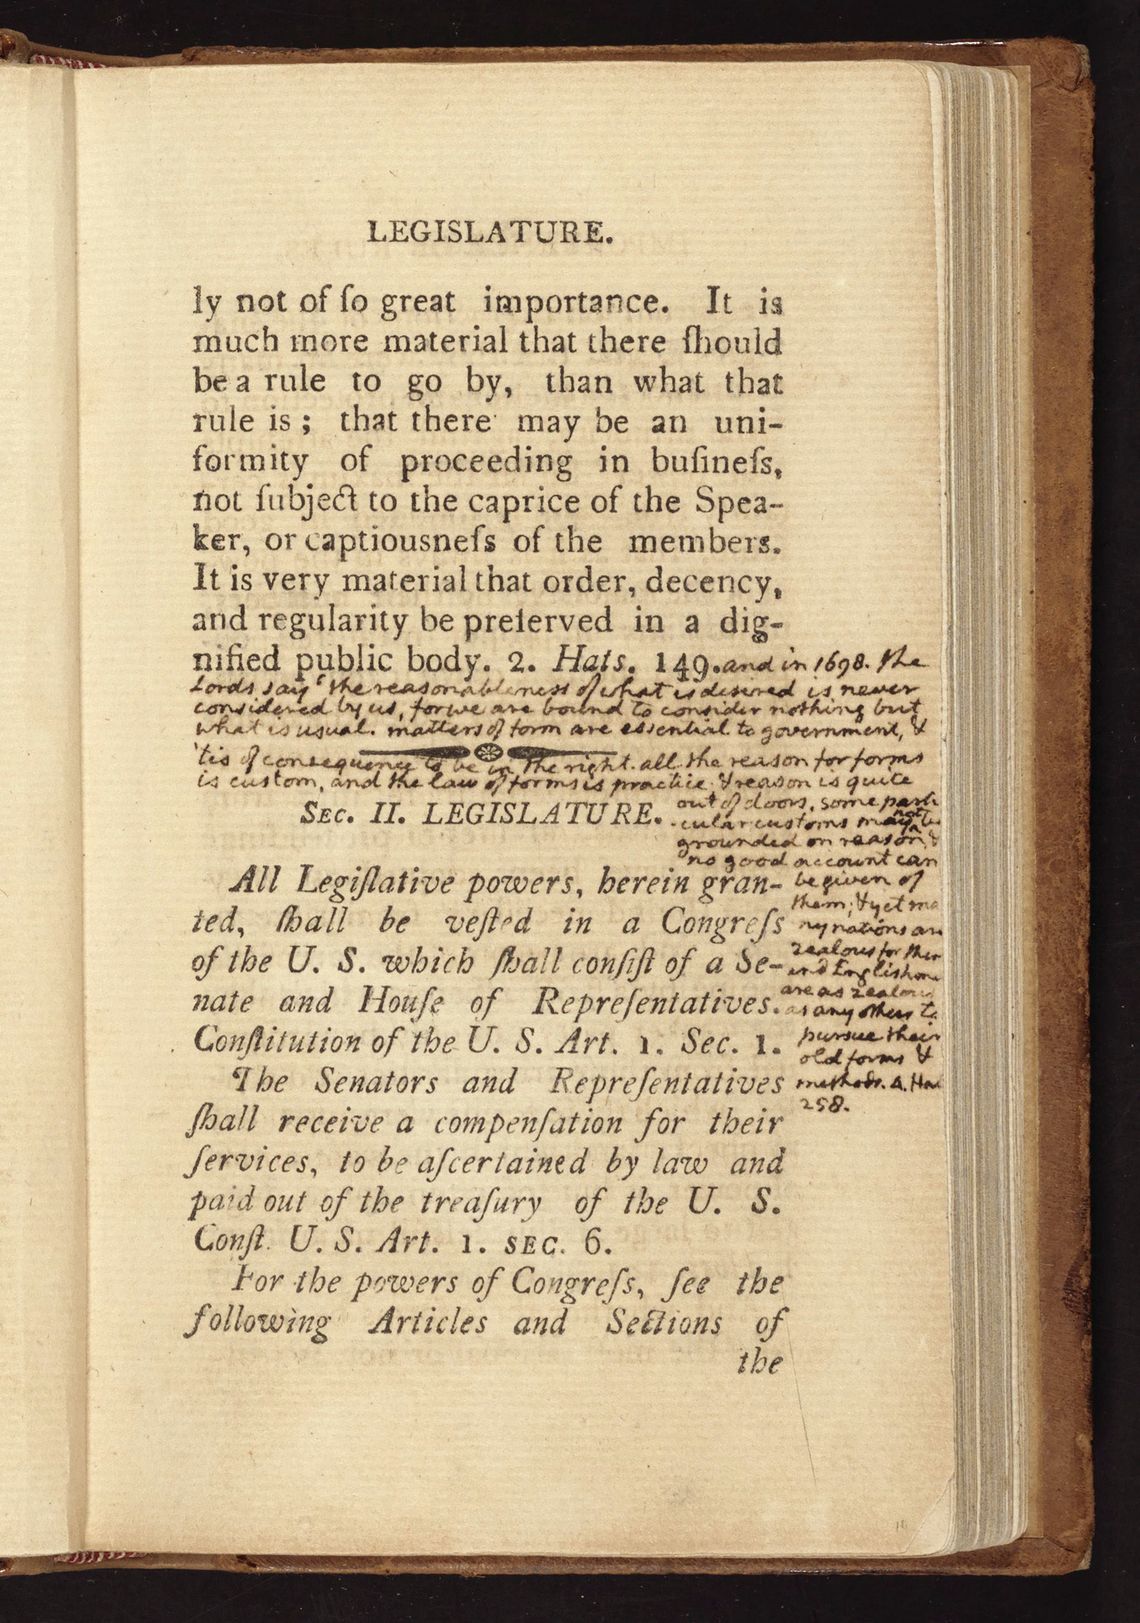 LEGISLATURE.
ly not of ſo great importance. It is
much more material that there ſhould
be a rule to go by, than what that
rule is; that there may be an uni-
formity of proceeding in buſineſs,
not ſubject to the caprice of the Spea-
ker, or captiousneſs of the members.
It is very material that order, decency,
and regularity be preſerved in a dig-
nified public body. 2. Hats. 149. and in 1698. the
Lords say 'the reasonableness of what is desired is never
considered by us, for we are bound to consider nothing but
what is usual. matters of form are essential to government, &
'tis of consequence to be in the right. all the reason for forms
is custom, and the law of forms is practice & reason is quite
out of doors, some parti
cular customs may not be
grounded on reason, &
no good account can
be given of
them; & yet ma
ny nations are
zealous for them
and Englishmen
are as zealous
as any others to
pursue their
old forms &
methods. 4. Hat
258.
SEC. II. LEGISLATURE.
All Legiſlative powers, herein gran-
ted, ſhall be veſted in a Congreſs
of the U. S. which ſhall conſiſt of a Se-
nate and Houſe of Repreſentatives.
Conſtitution of the U. S. Art. 1. Sec. 1.
The Senators and Repreſentatives
ſhall receive a compenſation for their
ſervices, to be aſcertained by law and
paid out of the treaſury of the U. S.
Conſt. U. S. Art. 1. SEC. 6.
For the powers of Congreſs, ſee the
following Articles and Sections of
the